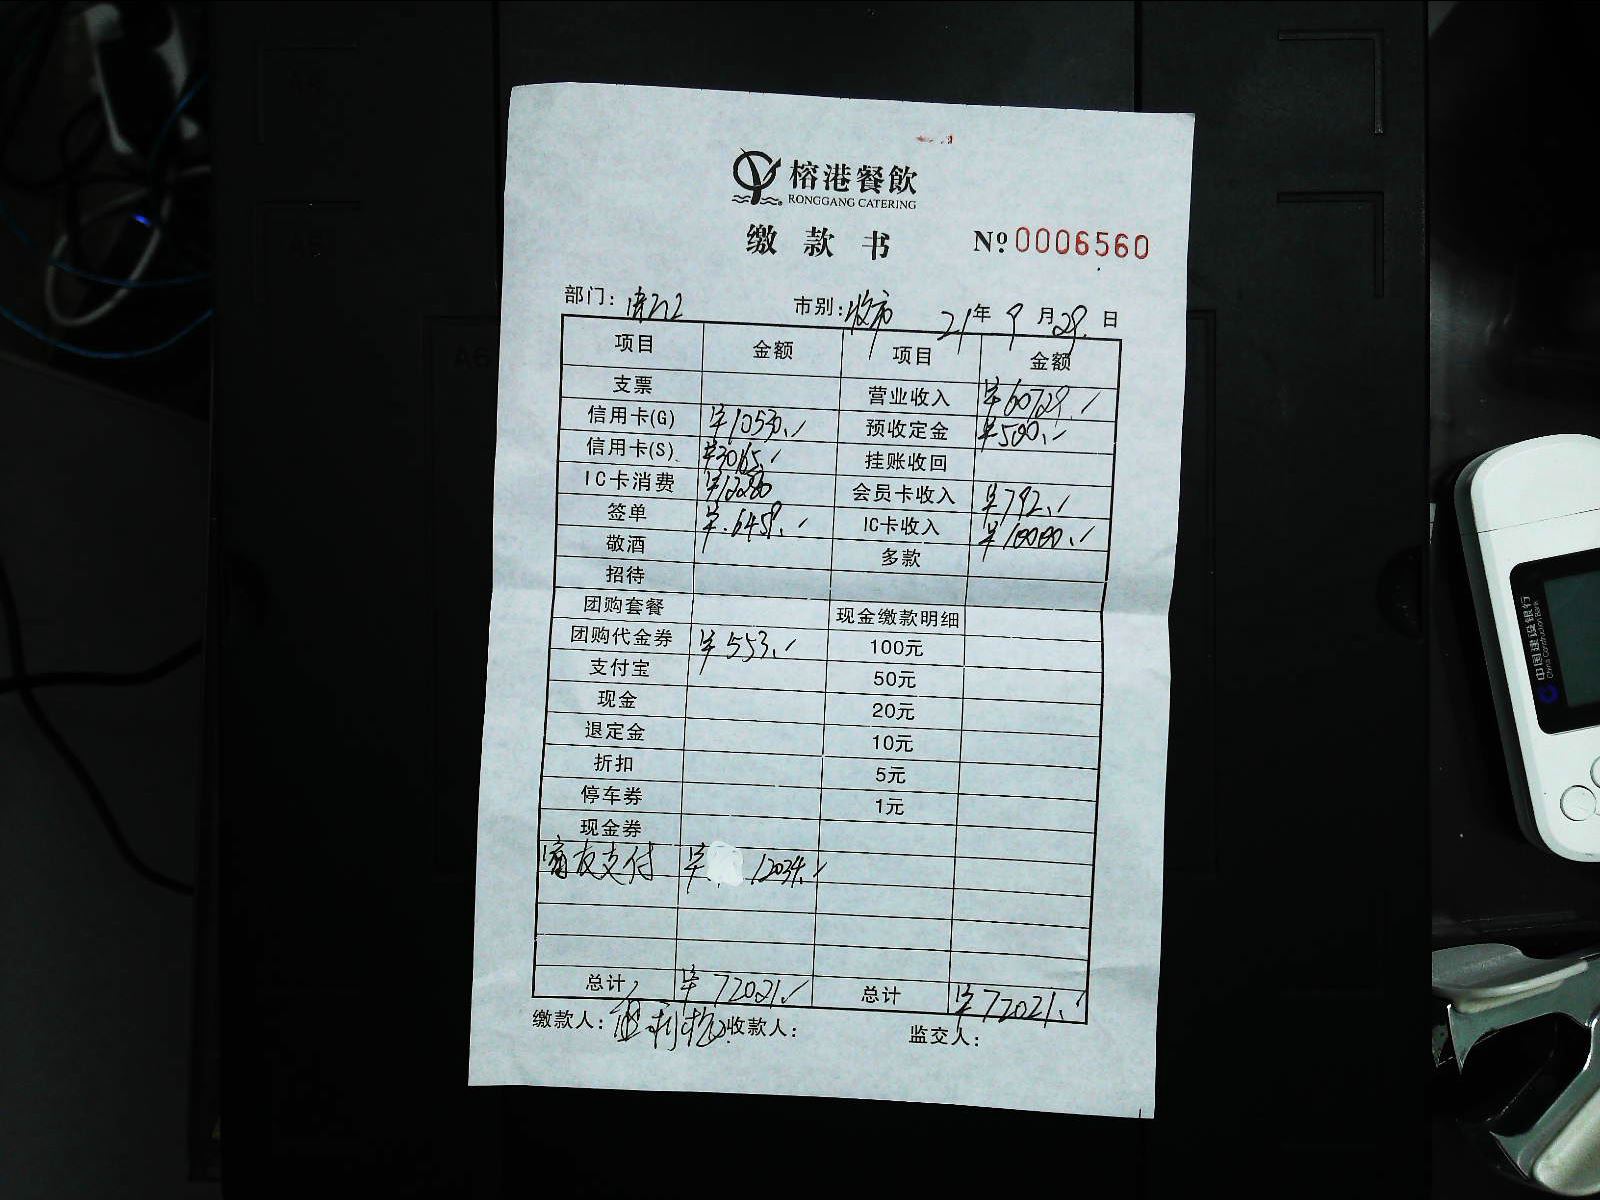 榕港餐飲
RONGGANG CATERING
缴款书 Nº 0006560
部门: 市别: 收市 21年 9月 29日
项目 金额 项目 金额
支票 营业收入 ¥60729.
信用卡(G) ¥10530. 预收定金 ¥500.
信用卡(S) ¥30165. 挂账收回
IC卡消费 ¥12280 会员卡收入 ¥792.
签单 ¥6459. IC卡收入 ¥10000.
敬酒 多款
招待
团购套餐 现金缴款明细
团购代金券 ¥553. 100元
支付宝 50元
现金 20元
退定金 10元
折扣 5元
停车券 1元
现金券
富友支付 ¥12034.
总计 ¥72021. 总计 ¥72021.
缴款人: 收款人: 监交人:
中国建设银行
China Construction Bank